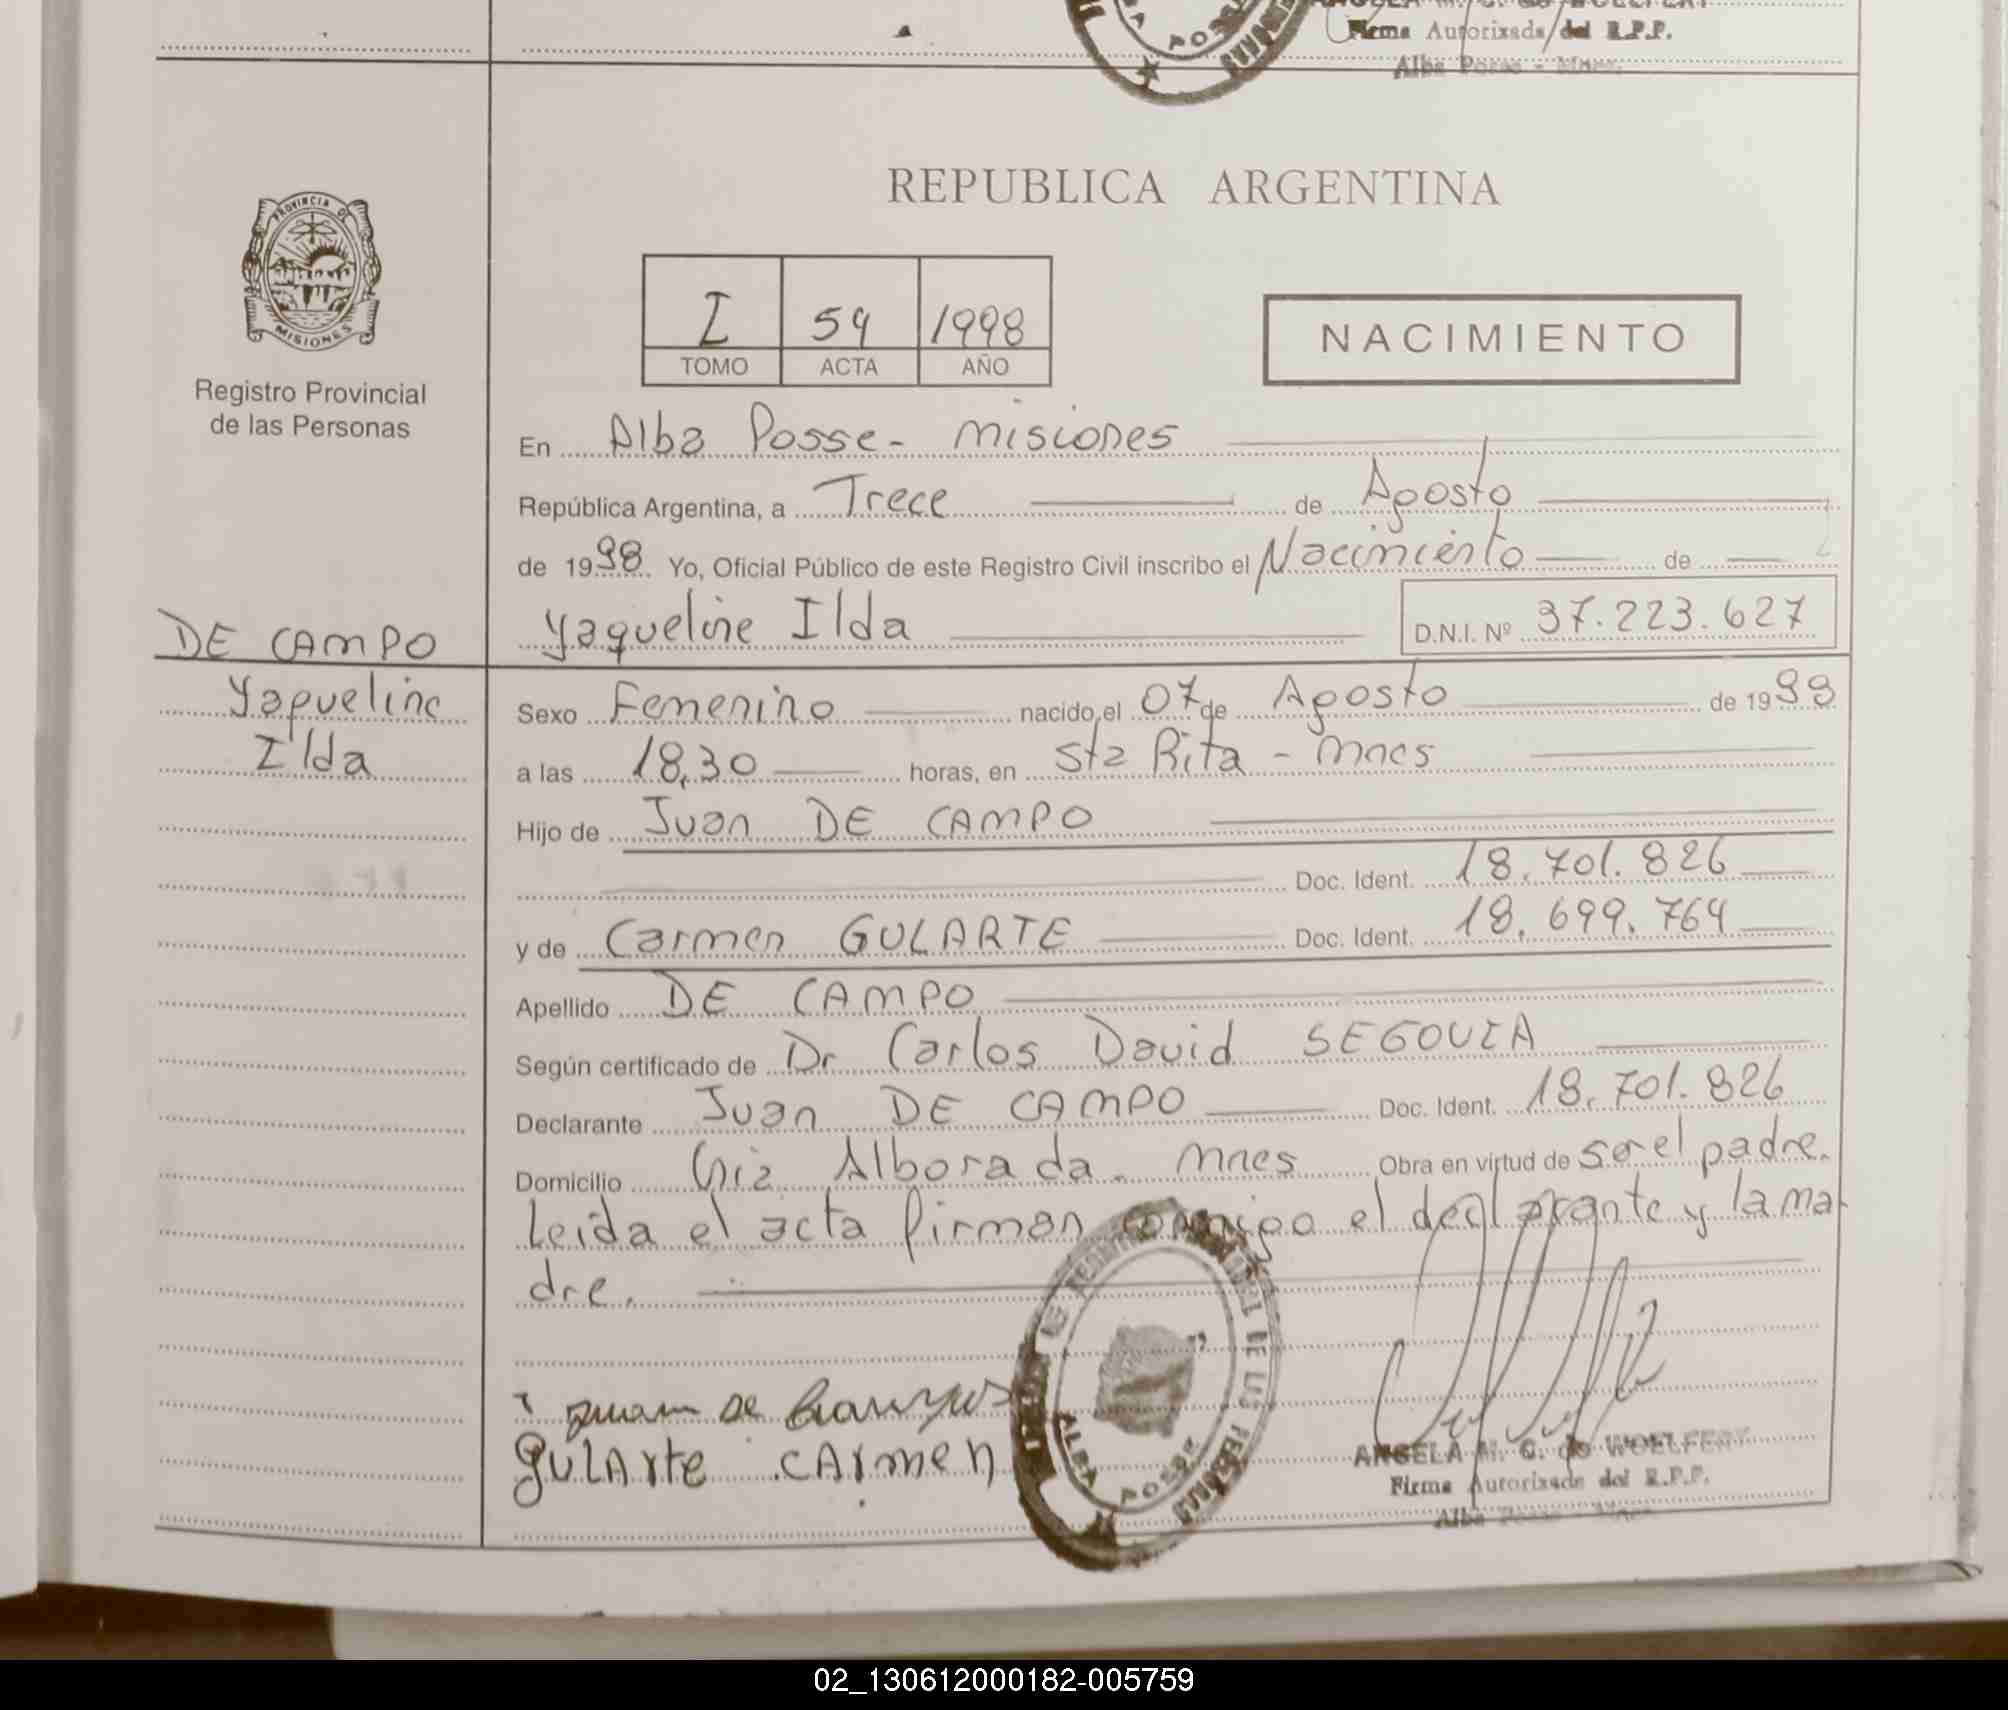 Firma Autorizada del R.P.P.
Alba Posse - Mnes.
ALBA POSSE
REPUBLICA ARGENTINA
PROVINCIA DE
MISIONES
I 59 1998
TOMO ACTA AÑO
NACIMIENTO
Registro Provincial
de las Personas
En Alba Posse - Misiones
República Argentina, a Trece de Agosto
de 1998. Yo, Oficial Público de este Registro Civil inscribo el Nacimiento de
DE CAMPO
Yaqueline Ilda D.N.I. Nº 37.223.627
Yaqueline
Ilda
Sexo Femenino nacido el 07 de Agosto de 1998
a las 18,30 horas, en Sta Rita - Mnes
Hijo de Juan DE CAMPO
Doc. Ident. 18.701.826
y de Carmen GULARTE Doc. Ident. 18.699.764
Apellido DE CAMPO
Según certificado de Dr Carlos David SEGOVIA
Declarante Juan DE CAMPO Doc. Ident. 18.701.826
Domicilio Alborada - Mnes Obra en virtud de ser el padre.
Leida el acta firman conmigo el declarante y la ma-
dre.
gulArte cArmen
ALBA POSSE
ANGELA M. G. de WOELFERT
Firma Autorizada del R.P.P.
Alba Posse - Mnes.
02_130612000182-005759